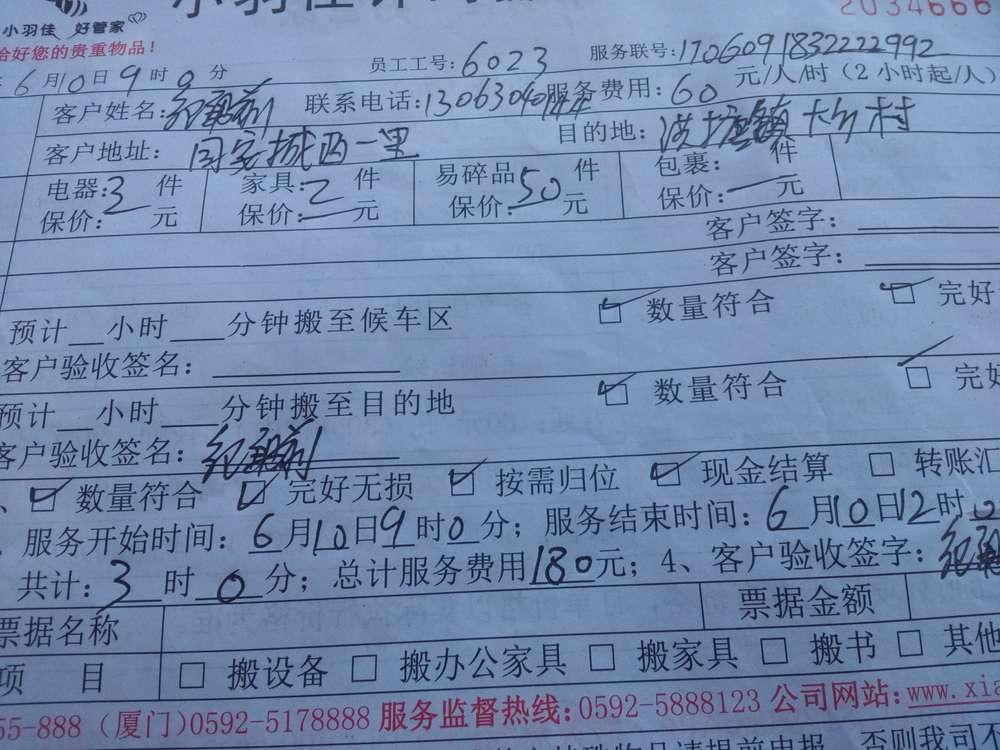 小羽佳 好管家
2034666
恰好您的贵重物品！
6月10日9时0分 员工工号：6023 服务联号：1706091832222992
客户姓名： 联系电话：130630 服务费用：60元/人/时（2小时起/人）
客户地址：同安城西一里 目的地：洪塘镇 村
电器：3件 家具：2件 易碎品 件 包裹： 件
保价：—元 保价：—元 保价：50元 保价：—元
客户签字：
客户签字：
预计__小时___分钟搬至候车区 ☑ 数量符合 ☑ 完好
客户验收签名：
预计__小时___分钟搬至目的地 ☑ 数量符合 ☑ 完好
客户验收签名：
、☑ 数量符合 ☑ 完好无损 ☑ 按需归位 ☑ 现金结算 □ 转账汇
、服务开始时间：6月10日9时0分；服务结束时间：6月10日12时0
共计：3时0分；总计服务费用180元；4、客户验收签字：
票据名称 票据金额
项 目 □ 搬设备 □ 搬办公家具 □ 搬家具 □ 搬书 □ 其他
55-888（厦门）0592-5178888 服务监督热线：0592-5888123 公司网站：www.xia